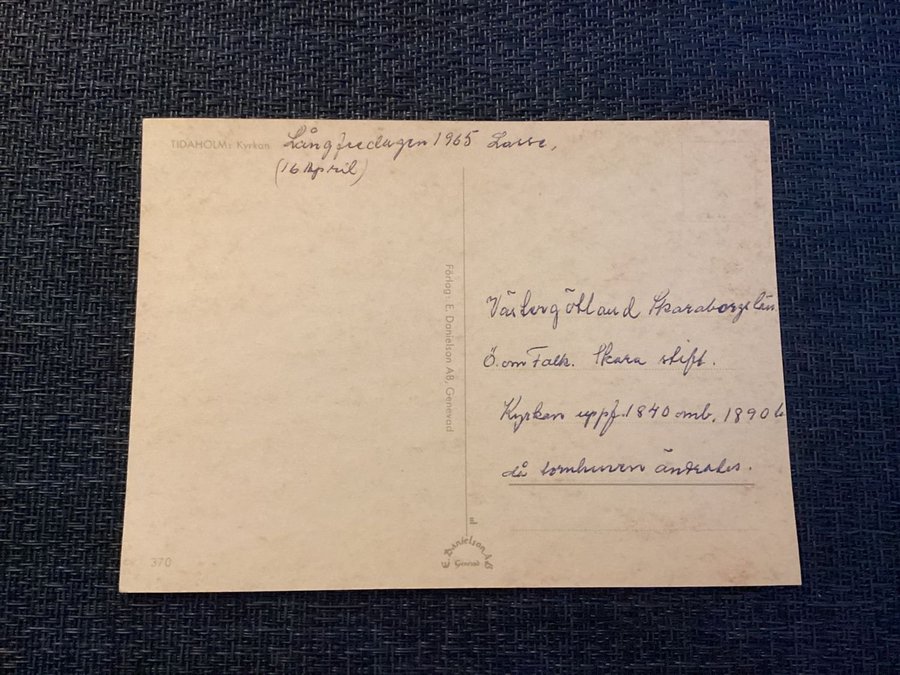 TIDAHOLM: Kyrkan
Långfredagen 1965 Lasse,
(16 April)
Förlag: E. Danielson AB, Genevad
Västergötland Skaraborgs län
Ö. om Falk. Skara stift.
Kyrkan uppf. 1840 omb. 1890
då tornhuven ändrades.
E. Danielson AB
Genevad
370